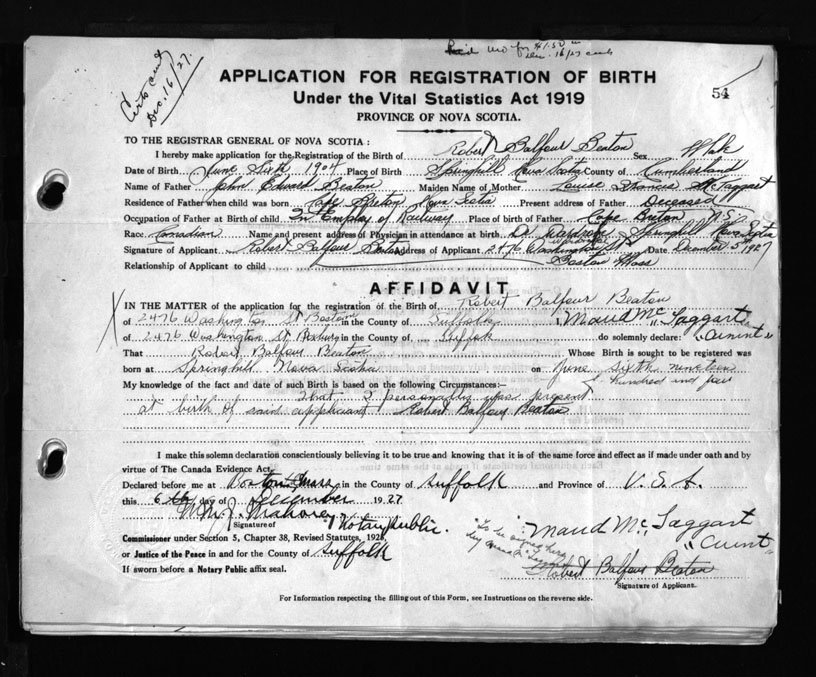 Paid
Dec. 16/27
Certs cand
Dec. 16/27.
APPLICATION FOR REGISTRATION OF BIRTH
54
Under the Vital Statistics Act 1919
PROVINCE OF NOVA SCOTIA.
TO THE REGISTRAR GENERAL OF NOVA SCOTIA :
I hereby make application for the Registration of the Birth of Robert Balfour Beaton Sex Male
Date of Birth June Sixth 1904 Place of Birth Springhill Nova Scotia County of Cumberland
Name of Father John Edward Beaton Maiden Name of Mother Louise Francis McTaggart
Residence of Father when child was born Cape Breton Nova Scotia Present address of Father Deceased
Occupation of Father at Birth of child In Employ of Railway Place of birth of Father Cape Breton N.S.
Race Canadian Name and present address of Physician in attendance at birth Dr. Springhill Nova Scotia
Signature of Applicant Robert Balfour Beaton Address of Applicant 2476 Washington St Date December 5th 1927
Relationship of Applicant to child Boston Mass
AFFIDAVIT
IN THE MATTER of the application for the registration of the Birth of Robert Balfour Beaton
of 2476 Washington St Boston in the County of Suffolk I, Maud Mc Taggart
of 2476 Washington St Roxbury in the County of Suffolk do solemnly declare: "Aunt"
That Robert Balfour Beaton Whose Birth is sought to be registered was
born at Springhill Nova Scotia on June sixth nineteen
hundred and four
My knowledge of the fact and date of such Birth is based on the following Circumstances:—
That I personally was present
at birth of said applicant Robert Balfour Beaton
I make this solemn declaration conscientiously believing it to be true and knowing that it is of the same force and effect as if made under oath and by
virtue of The Canada Evidence Act.
Declared before me at Boston Mass in the County of Suffolk and Province of U.S.A.
this 6th day of December 1927
M.J. Mahoney
Signature of Notary Public.
Maud Mc Taggart
"Aunt"
Commissioner under Section 5, Chapter 38, Revised Statutes, 1923,
"To be signed here
or Justice of the Peace in and for the County of Suffolk
Robert Balfour Beaton
If sworn before a Notary Public affix seal.
Signature of Applicant.
For Information respecting the filling out of this Form, see Instructions on the reverse side.